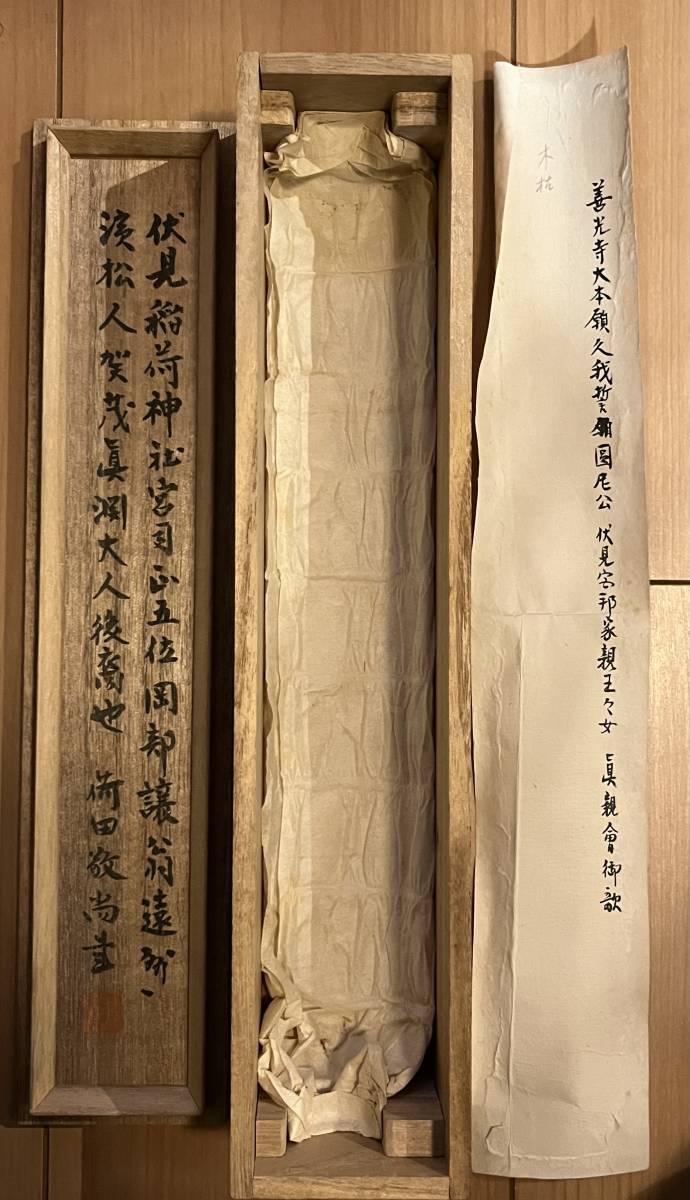 善光寺大本願久我誓圓尼公 伏見宮邦家親王々女 眞親會御歌
伏見稲荷神社宮司正五位岡部譲翁遠州
濱松人賀茂眞淵大人後裔也 荷田敬尚書